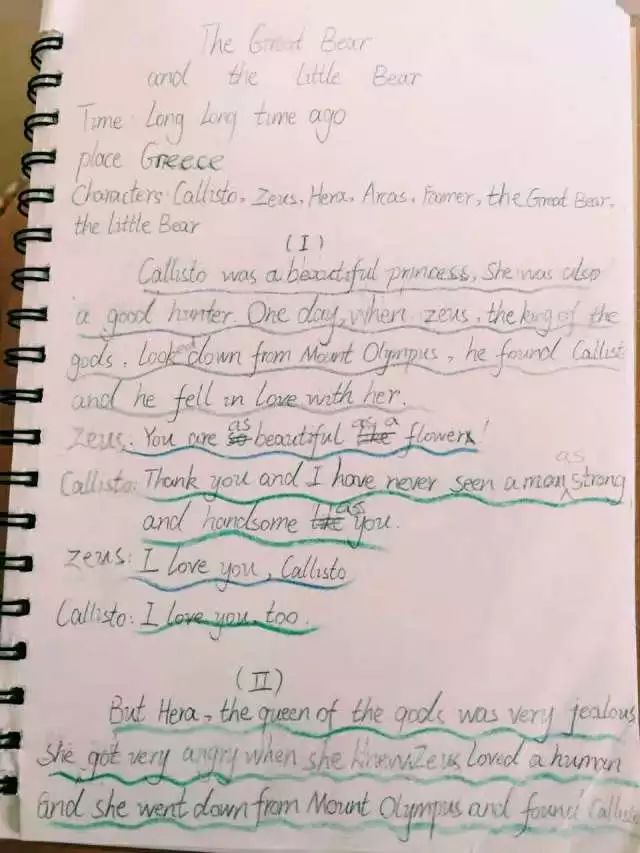 The Great Bear
and the Little Bear
Time: Long Long time ago
place Greece
Characters: Callisto, Zeus, Hera, Arcas, Farmer, the Great Bear,
the Little Bear
(I)
Callisto was a beautiful princess, She was also
a good hunter. One day, when zeus, the king of the
gods, looked down from Mount Olympus, he found Callist
and he fell in love with her.
Zeus: You are as beautiful as a flower!
Callisto: Thank you and I have never seen a man as strong
and handsome as you.
Zeus: I love you, Callisto
Callisto: I love you, too.
(II)
But Hera, the queen of the gods was very jealous
She got very angry when she knew Zeus loved a human
and she went down from Mount Olympus and found Callisto